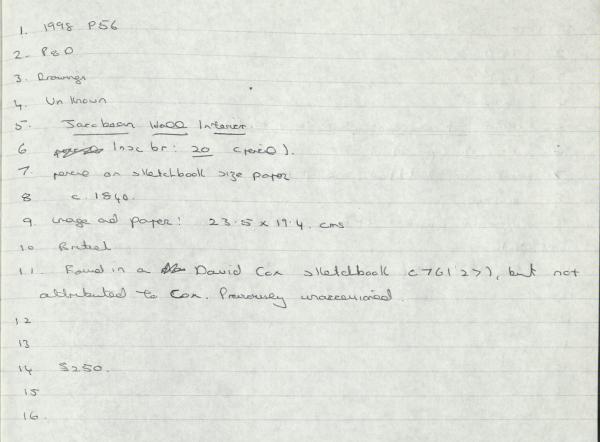 1. 1998 P56
2. P&D
3. Drawings
4. Unknown
5. Jacobean Wall Interior.
6 Inscbr: 20 (pencil).
7. pencil on sketchbook size paper
8 c. 1840.
9. image and paper: 23.5 x 19.4. cms
10 British
11. Found in a David Cox sketchbook (76'27), but not
attributed to Cox. Previously unaccessioned.
12
13
14 S250.
15
16.